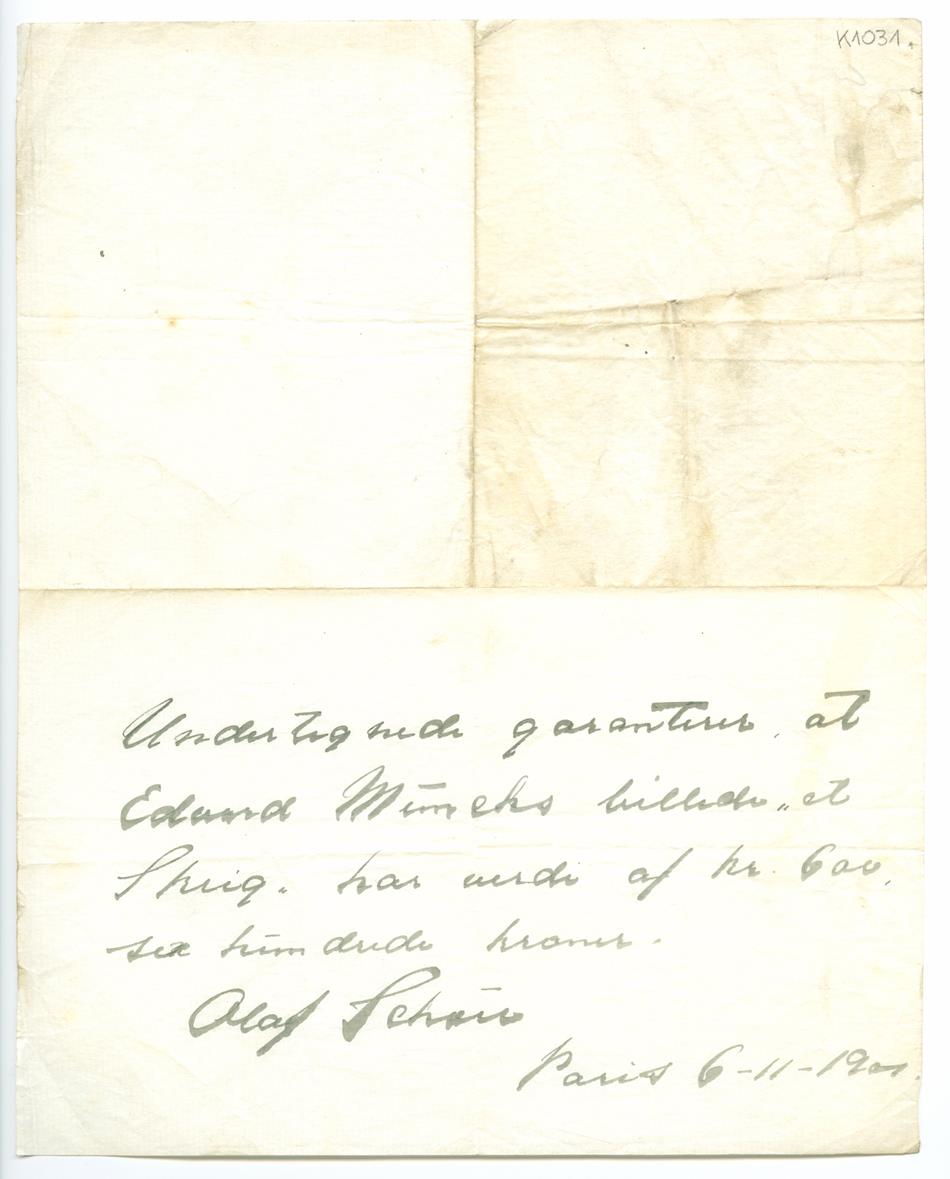 K1031.
Undertegnede garanterer, at
Edvard Munchs billede „et
Skrig“ har verdi af kr. 600,
sex hundrede kroner.
Olaf Schou
Paris 6-11-1901.